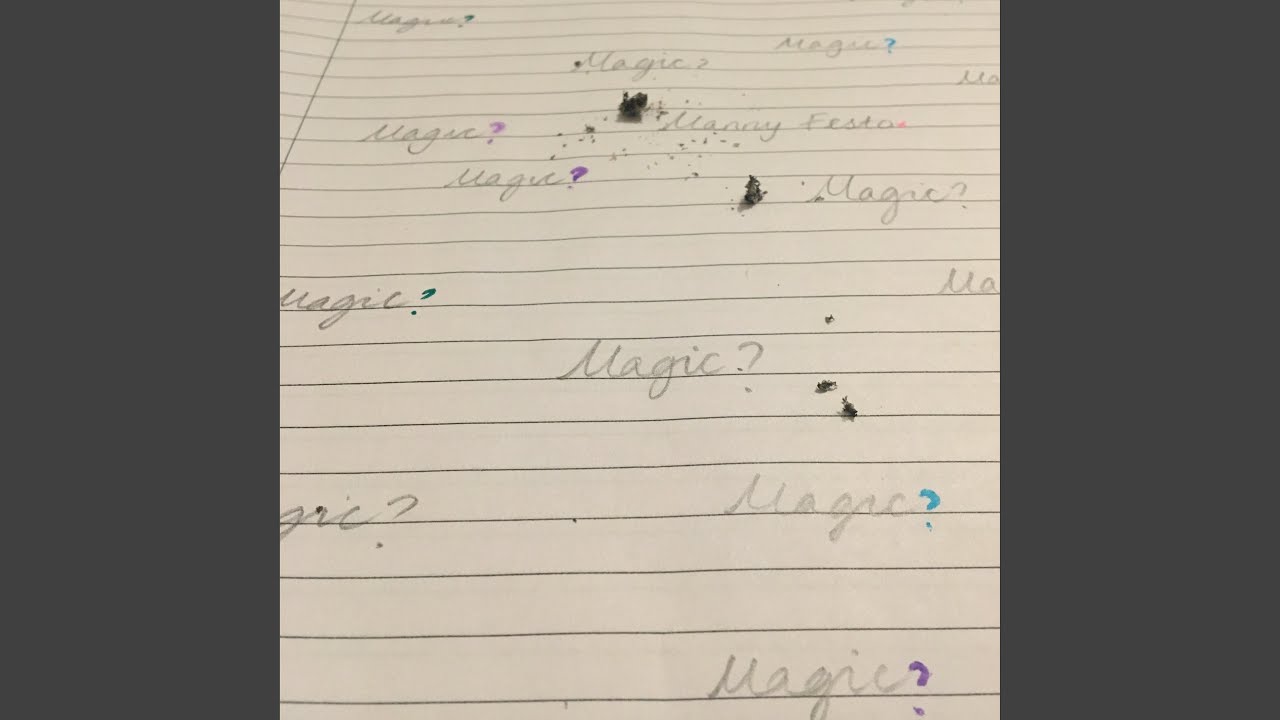 Magic?
Magic?
Magic?
Ma
Manny Festo.
Magic?
Magic?
Magic?
Ma
Magic?
Magic?
Magic?
gic?
Magic?